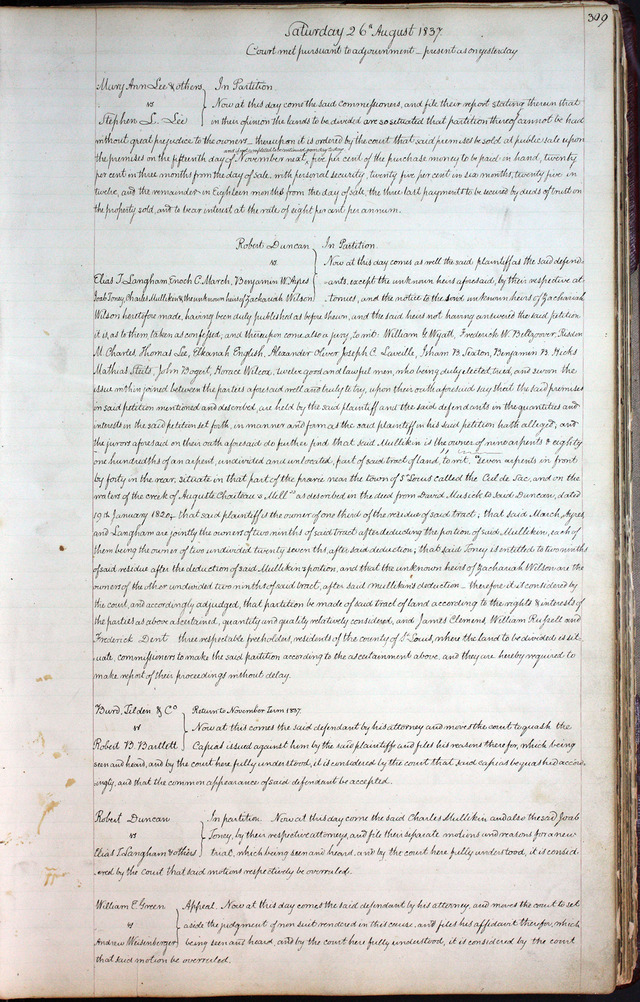 309
Saturday 26th August 1837.
Court met pursuant to adjournment – present as on yesterday
Mary Ann Lee & others } In Partition.
vs } Now at this day come the said commissioners, and file their report stating therein that
Stephen L. Lee } in their opinion the lands to be divided are so situated that partition thereof cannot be had
without great prejudice to the owners – thereupon it is ordered by the court that said premises be sold at public sale upon
the premises on the fifteenth day of November next, five per cent of the purchase money to be paid in hand, twenty
per cent in three months from the day of sale, with personal security, twenty five per cent in six months, twenty five in
twelve, and the remainder in Eighteen months from the day of sale, the three last payments to be secured by deeds of trust on
the property sold, and to bear interest at the rate of eight per cent per annum.
Robert Duncan } In Partition.
vs. } Now at this day comes as well the said plaintiff as the said defend-
Elias T. Langham Enoch C. March, Benjamin W. Ayres } -ants, except the unknown heirs aforesaid, by their respective at-
Joab Toney, Charles Mullikin & the unknown heirs of Zachariah Wilson } tornies, and the notice to the said unknown heirs of Zachariah
Wilson heretofore made, having been duly published as before shewn, and the said heirs not having answered the said petition
it is, as to them taken as confessed, and thereupon come also a jury, to wit: William G. Wyatt, Frederick W. Beltzoover, Risdon
M. Charles, Thomas Lee, Elkanah English, Alexander Oliver Joseph C. Laveille, Isham B. Sexton, Benjamin B. Hicks
Mathias Steits, John Bogert, Horace Wilcox, twelve good and lawful men, who being duly elected, tried, and sworn the
issue within joined between the parties aforesaid well and truly to try, upon their oath aforesaid say that the said premises
in said petition mentioned and described, are held by the said plaintiff and the said defendants in the quantities and
interests in the said petition set forth, in manner and form as the said plaintiff in his said petition hath alleged, and
the jurors aforesaid on their oath aforesaid do further find that said Mullikin is the owner of nine arpents & eighty
one hundredths of an arpent, undivided and unlocated, part of said tract of land, to wit: "Seven arpents in front
by forty in the rear, situate in that part of the prairie near the town of St Louis called the Cul de Sac, and on the
waters of the creek of Auguste Chouteau's Mill" as described in the deed from David Musick to said Duncan, dated
19th January 1820, that said plaintiff is the owner of one third of the residue of said tract; that said March, Ayres,
and Langham are jointly the owners of two ninths of said tract after deducting the portion of said Mullikin, each of
them being the owner of two undivided twenty sevenths, after said deduction; that said Toney is entitled to two ninths
of said residue after the deduction of said Mullikin's portion, and that the unknown heirs of Zachariah Wilson are the
owners of the other undivided two ninths of said tract, after said Mullikin's deduction – therefore it is considered by
the court, and accordingly adjudged, that partition be made of said tract of land according to the rights & interests of
the parties as above ascertained, quantity and quality relatively considered, and James Clemens, William Russell and
Frederick Dent three respectable freeholders, residents of the county of St Louis, where the land to be divided is sit-
uate, commissioners to make the said partition according to the ascertainment above, and they are hereby required to
make report of their proceedings without delay.
Burd, Tilden & Co } Return to November Term 1837.
vs } Now at this comes the said defendant by his attorney and moves the court to quash the
Robert B. Bartlett } Capias issued against him by the said plaintiffs and files his reasons therefor, which being
seen and heard, and by the court here fully understood, it is considered by the court that said capias be quashed accord-
ingly, and that the common appearance of said defendant be accepted.
Robert Duncan } In partition. Now at this day come the said Charles Mullikin and also the said Joab
vs } Toney, by their respective attorneys, and file their separate motions and reasons for a new
Elias T. Langham & others } trial, which being seen and heard, and by the court here fully understood, it is consid-
ered by the court that said motions respectively be overruled.
William E. Green } Appeal. Now at this day comes the said defendant by his attorney, and moves the court to set
vs } aside the judgment of non suit rendered in this cause, and files his affidavit therefor, which
Andrew Weisenberger } being seen and heard, and by the court here fully understood, it is considered by the court
that said motion be overruled.